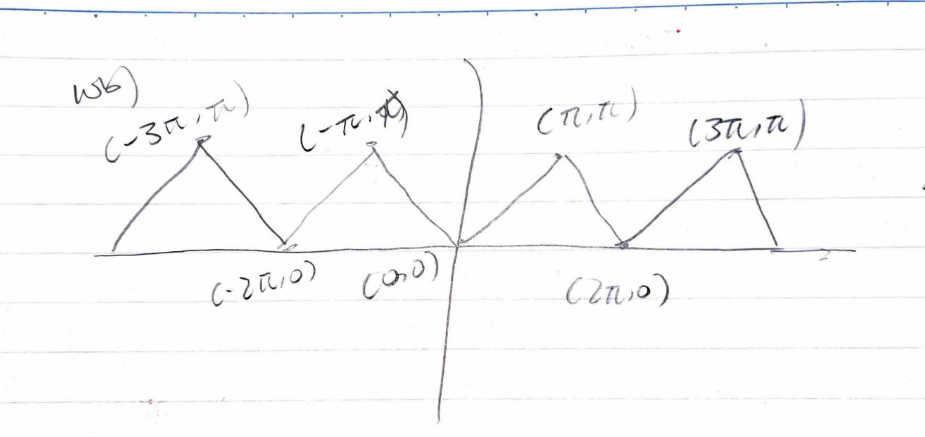 (-3π,π)
(-π,π)
(π,π)
(3π,π)
(-2π,0)
(0,0)
(2π,0)